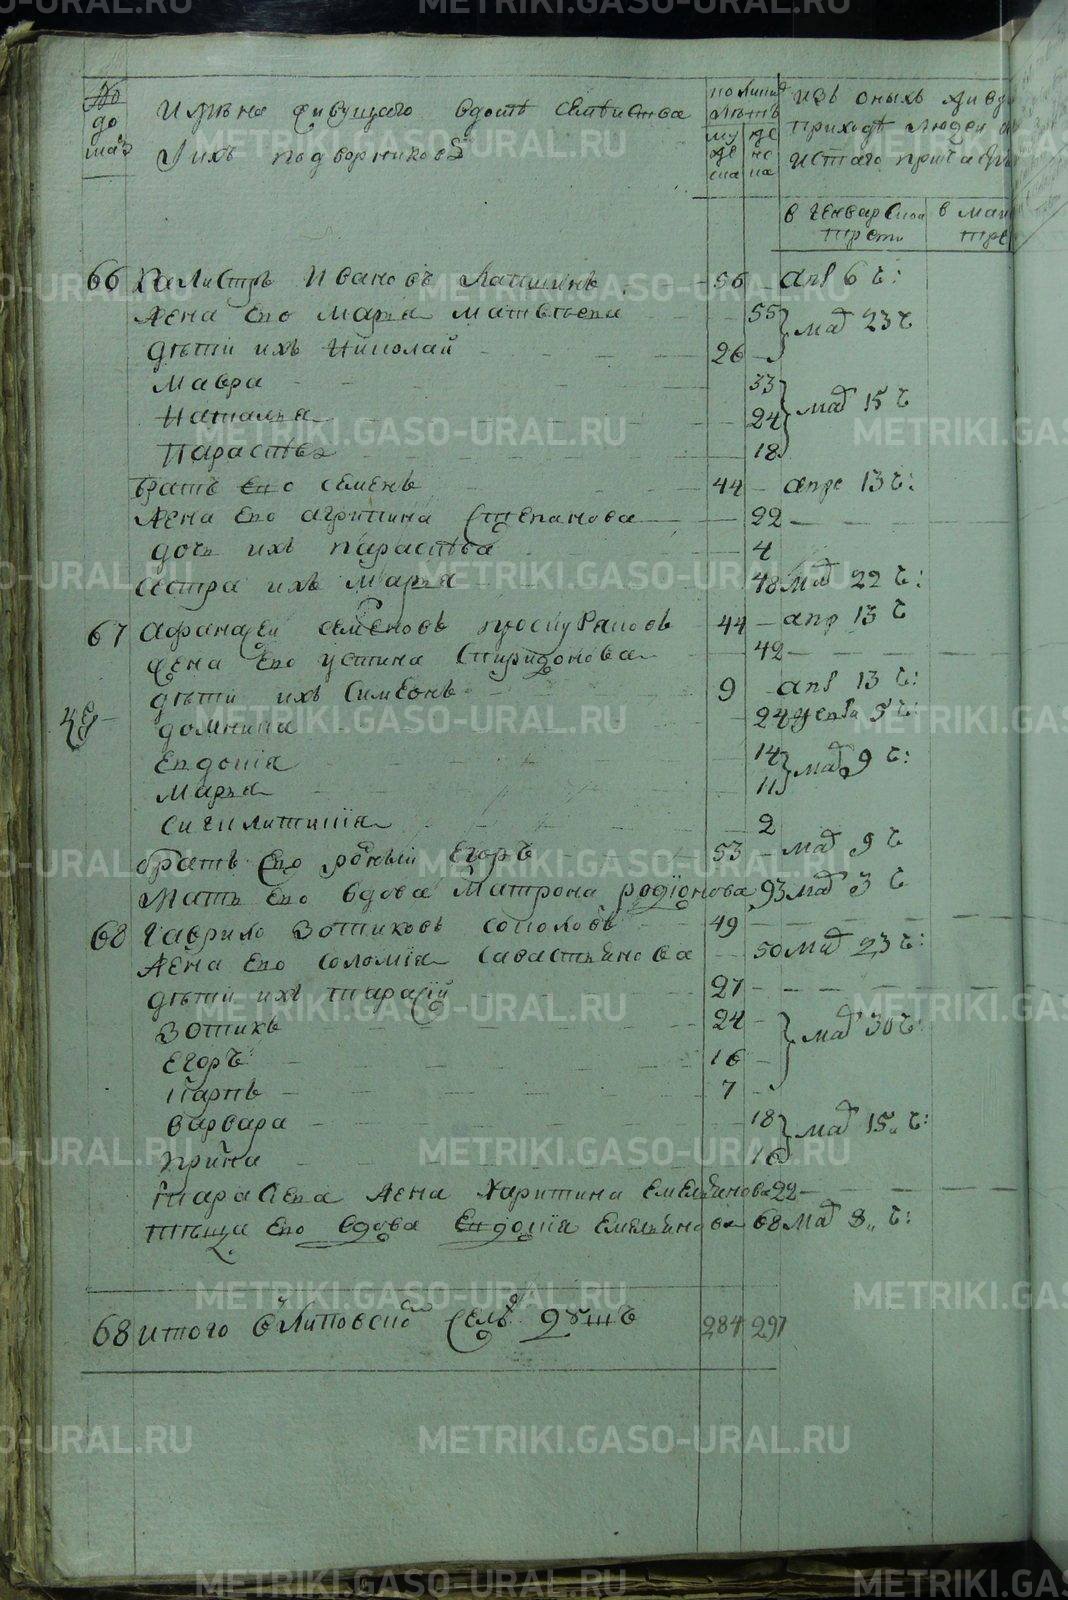 № до ма
Имѣна живущаго в домѣ семѣиства
и ихъ подворниковъ
по колику лѣтъ
муже ска
же нска
изъ оныхъ живу
приходѣ людеи
истаго причастия
в генварскои трети
в маи тре
66 Калистръ Ивановъ Лапшинъ 56 апр 6 ч:
жена ево марья матвѣева 55 маѧ 23 ч
дѣти ихъ николай 26
мавра 33
наталья 24 маѧ 15 ч
парасков 18
братъ ево семенъ 44 апре 13 ч:
жена ево агрипина степанова 22
дочь ихъ парасковья 4
сестра ихъ марья 48 маѧ 22 ч:
67 афанасеи семеновъ 44 апр 13 ч
жена ево устина спиридонова 42
дѣти ихъ симеонъ 9 апр 13 ч:
домнина 24 генва 5 ч:
евдокія 14 маѧ 9 ч:
марья 11
сигклитикія 2
братъ ево родный Егоръ 53 маѧ 9 ч
мать ево вдова матрона родіонова 93 маѧ 3 ч
68 гаврило зотиковъ соколовъ 49
жена ево соломія савастьянова 50 маѧ 23 ч:
дѣти ихъ тарасій 27
зотикъ 24 маѧ 30 ч:
егоръ 16
карпъ 7
варвара 18 маѧ 15 ч:
ирина 16
тарасиева жена харитина емельянова 22
тѣща ево вдова евдокія емельянова 68 маѧ 8 ч:
68 итого в липовско селѣ душъ 284 297
METRIKI.GASO-URAL.RU